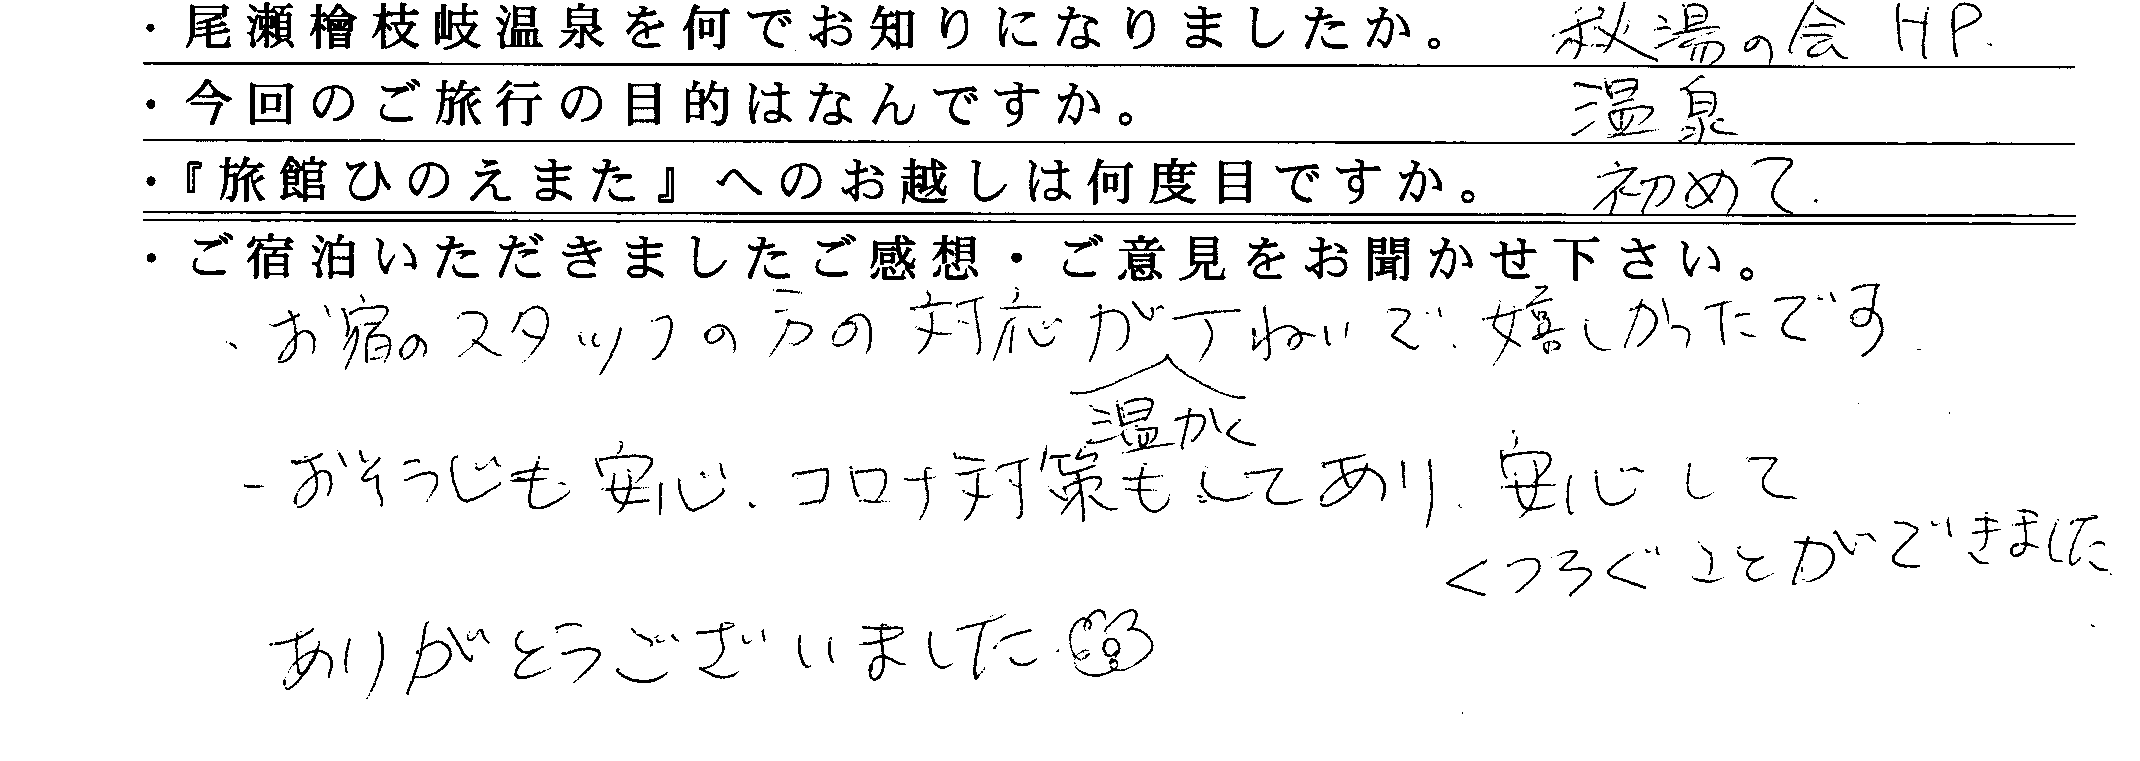 ・尾瀬檜枝岐温泉を何でお知りになりましたか。 秘湯の会 HP.
・今回のご旅行の目的はなんですか。 温泉
・『旅館ひのえまた』へのお越しは何度目ですか。 初めて.
・ご宿泊いただきましたご感想・ご意見をお聞かせ下さい。
・お宿のスタッフの方の対応が丁ねいで、嬉しかったです.
温かく
-おそうじも安心、コロナ対策もしてあり、安心して
くつろぐことができました
ありがとうございました